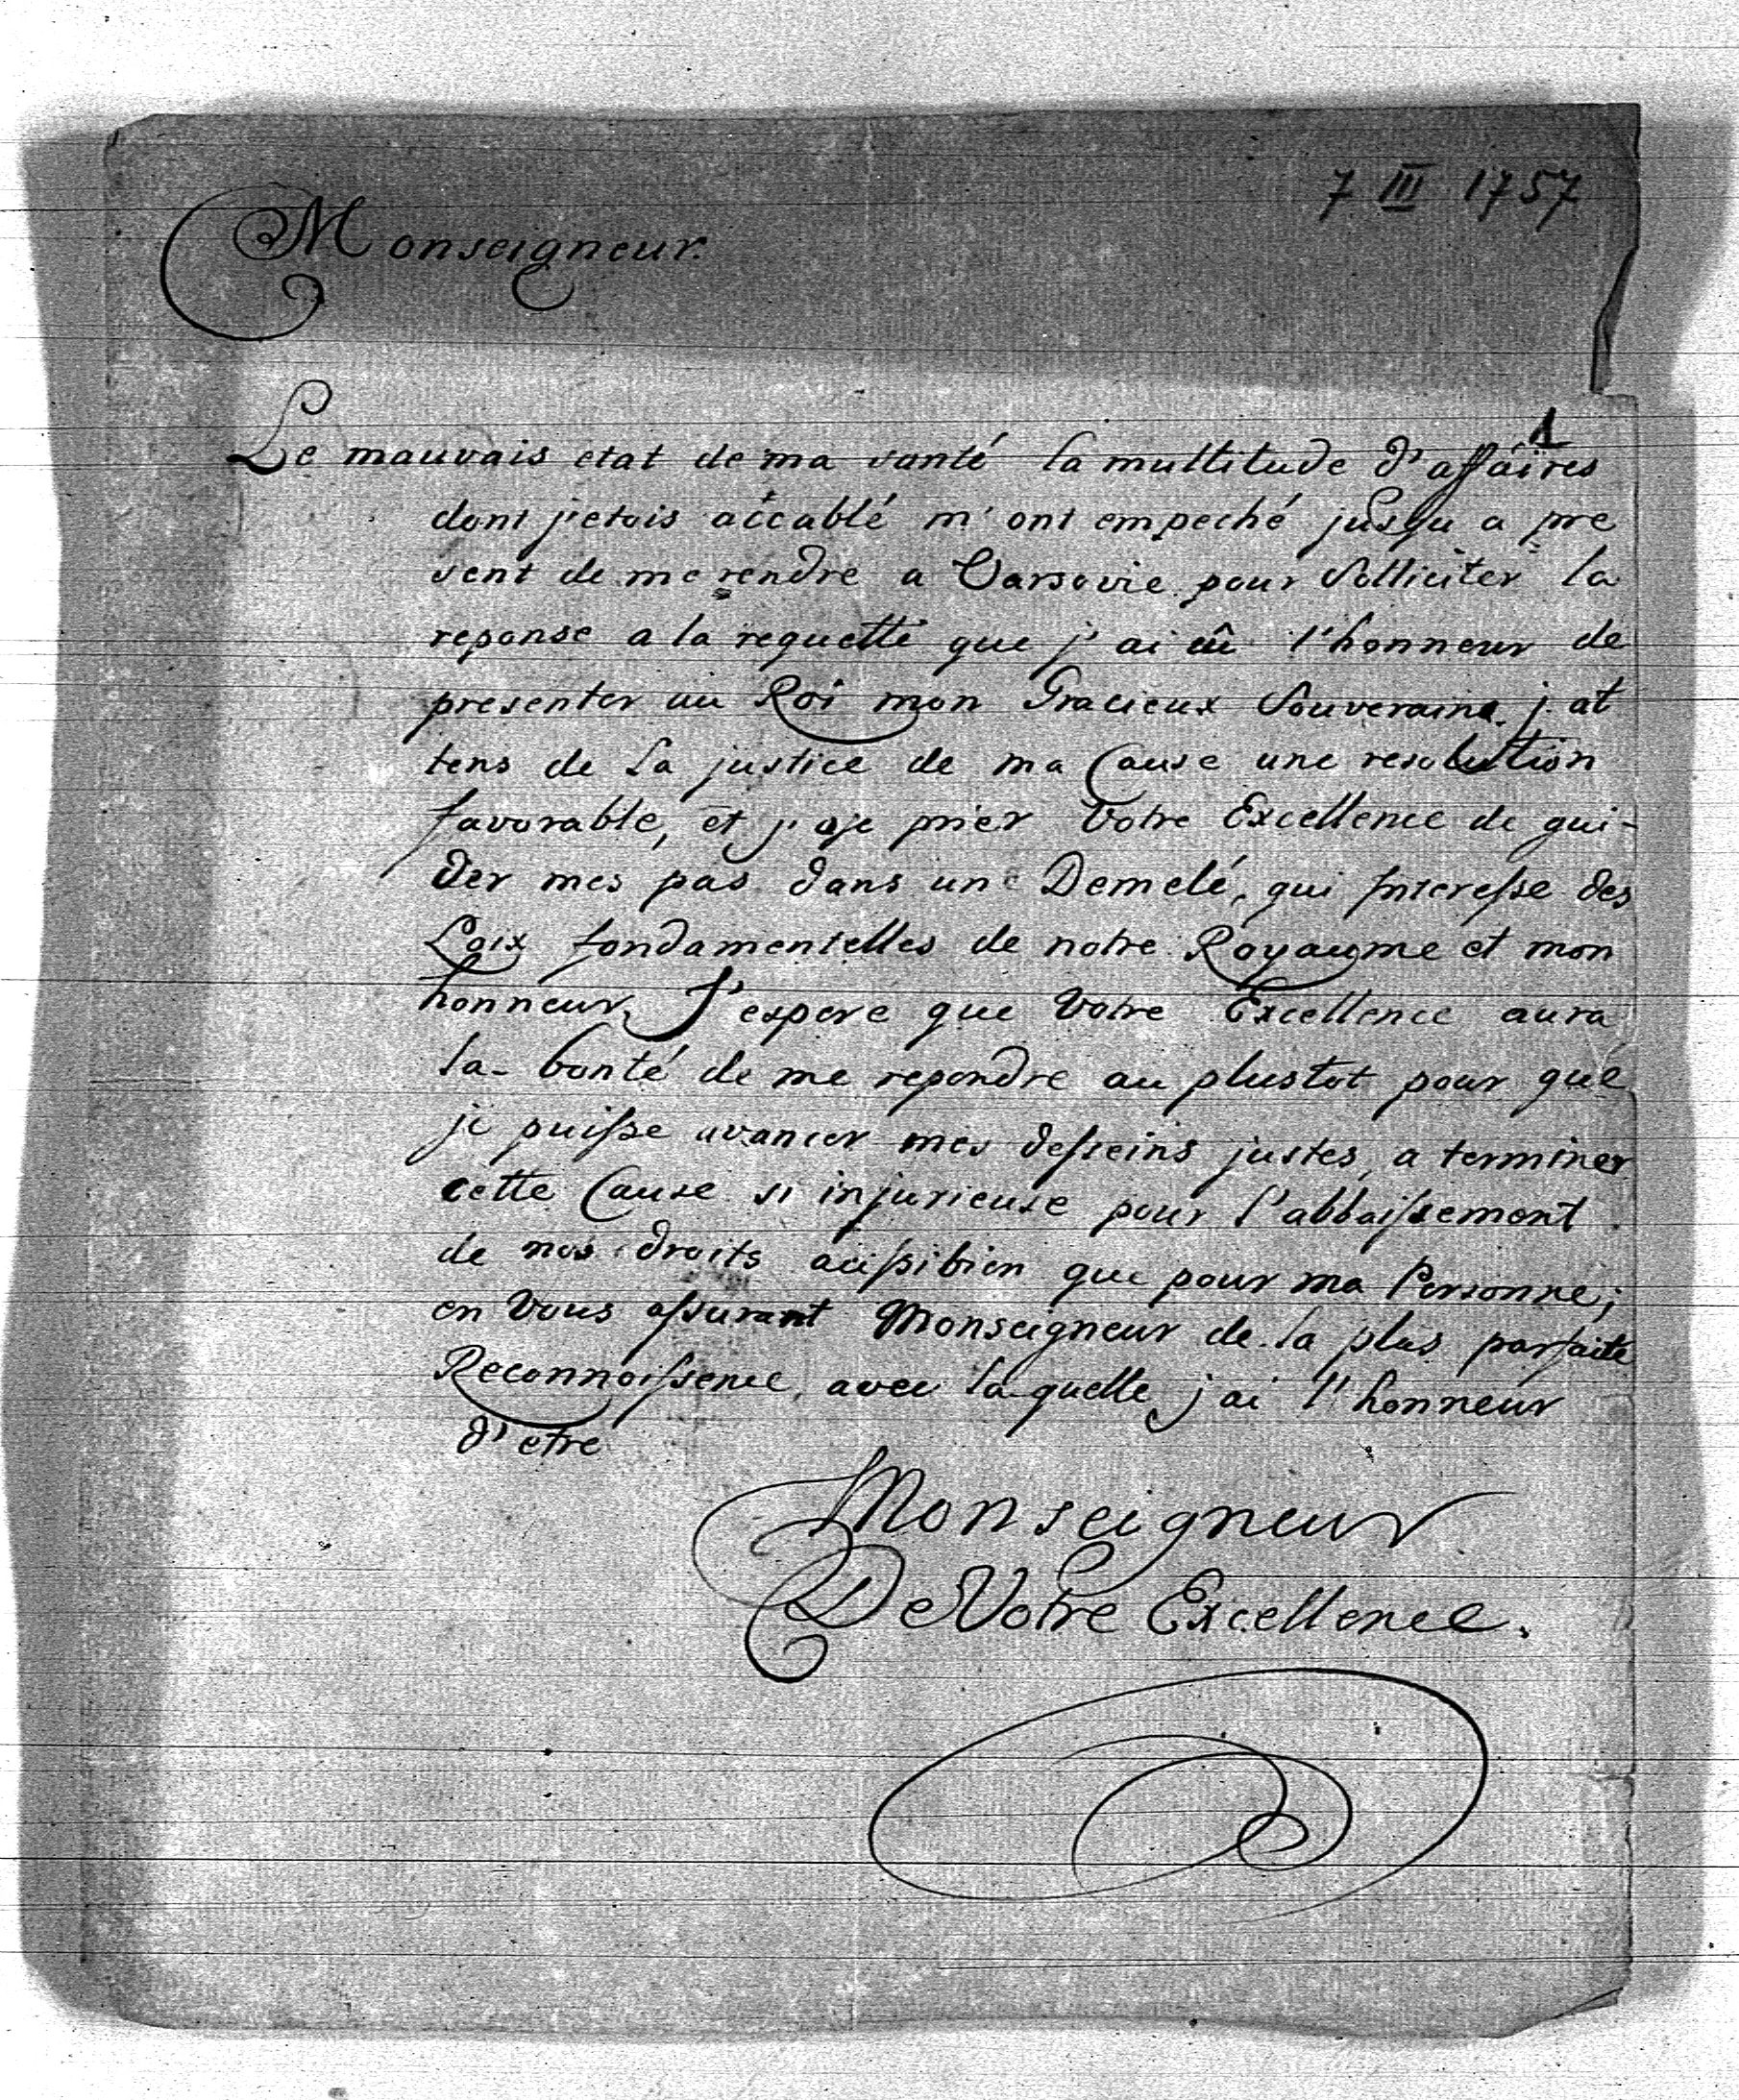 7 III 1757
Monseigneur.
1
Le mauvais etat de ma santé la multitude d'affaires
dont j'etois accablé m'ont empeché jusqu a pre
sent de me rendre a Varsovie pour Solliciter la
reponse a la requette que j'ai eû l'honneur de
presenter au Roi mon Gracieux Souverain. j'at
tens de La justice de ma Cause une resolution
favorable, et j'ose prier Votre Excellence de gui-
der mes pas dans un Demelé, qui Interesse des
Loix fondamentelles de notre Royaume et mon
honneur, J'espere que Votre Excellence aura
la bonté de me repondre au plustot pour que
je puisse avancer mes desseins justes, a terminer
cette Cause si injurieuse pour l'abbaissement
de nos droits aussibien que pour ma Personne;
en Vous assurant Monseigneur de la plus parfaite
Reconnoissence, avec laquelle j'ai l'honneur
d'etre
Monseigneur
De Votre Excellence.